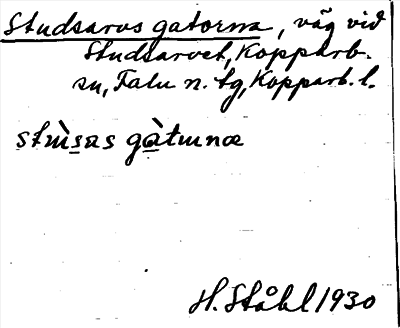 Studsarvs gatorna, väg vid
Studsarvet, Kopparb.
sn, Falu n. tg, Kopparb. l.
gàtunæ
H. Ståhl 1930